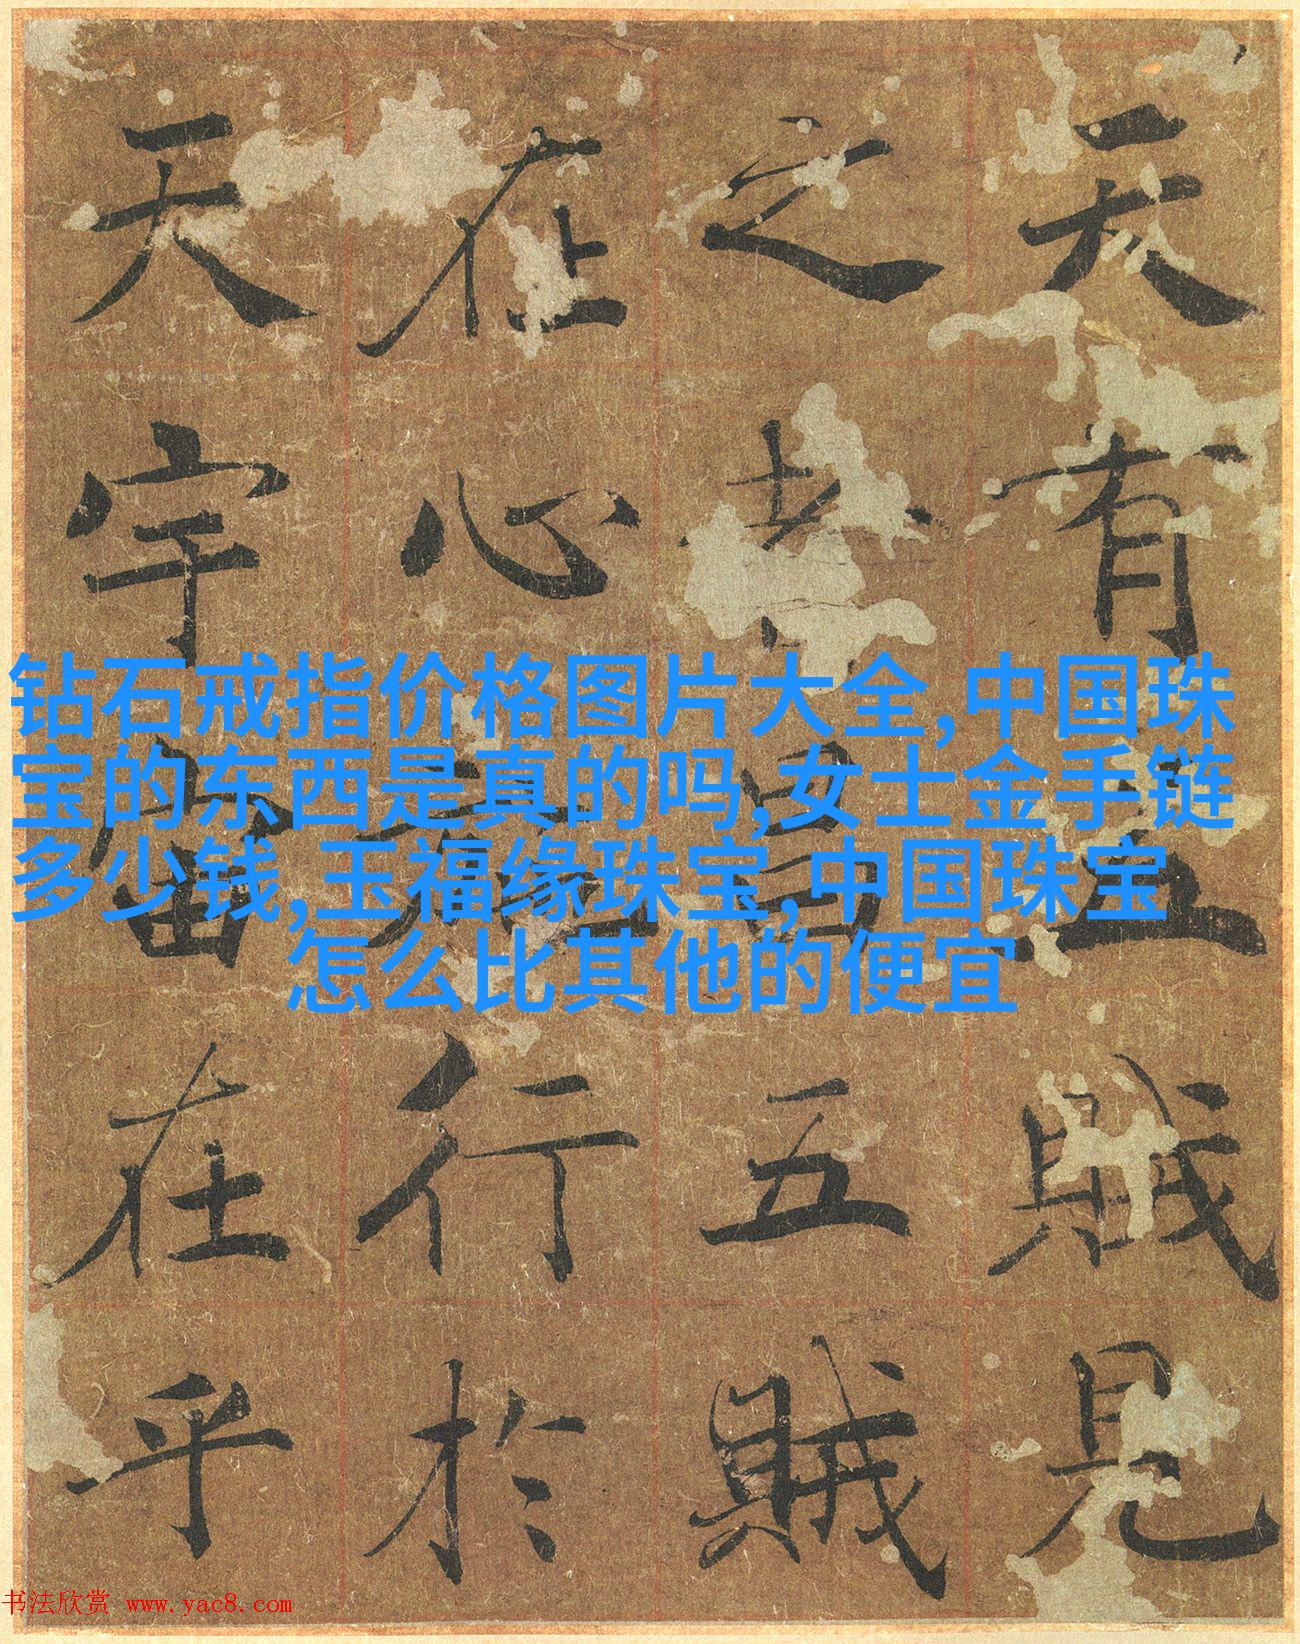 天有五賊見
之者昌五賊
在心施行於
天宇宙在乎
钻石戒指价格图片大全,中国珠
宝的东西是真的吗,女士金手链
多少钱,玉福缘珠宝,中国珠宝
怎么比其他的便宜
书法欣赏 www.yac8.com